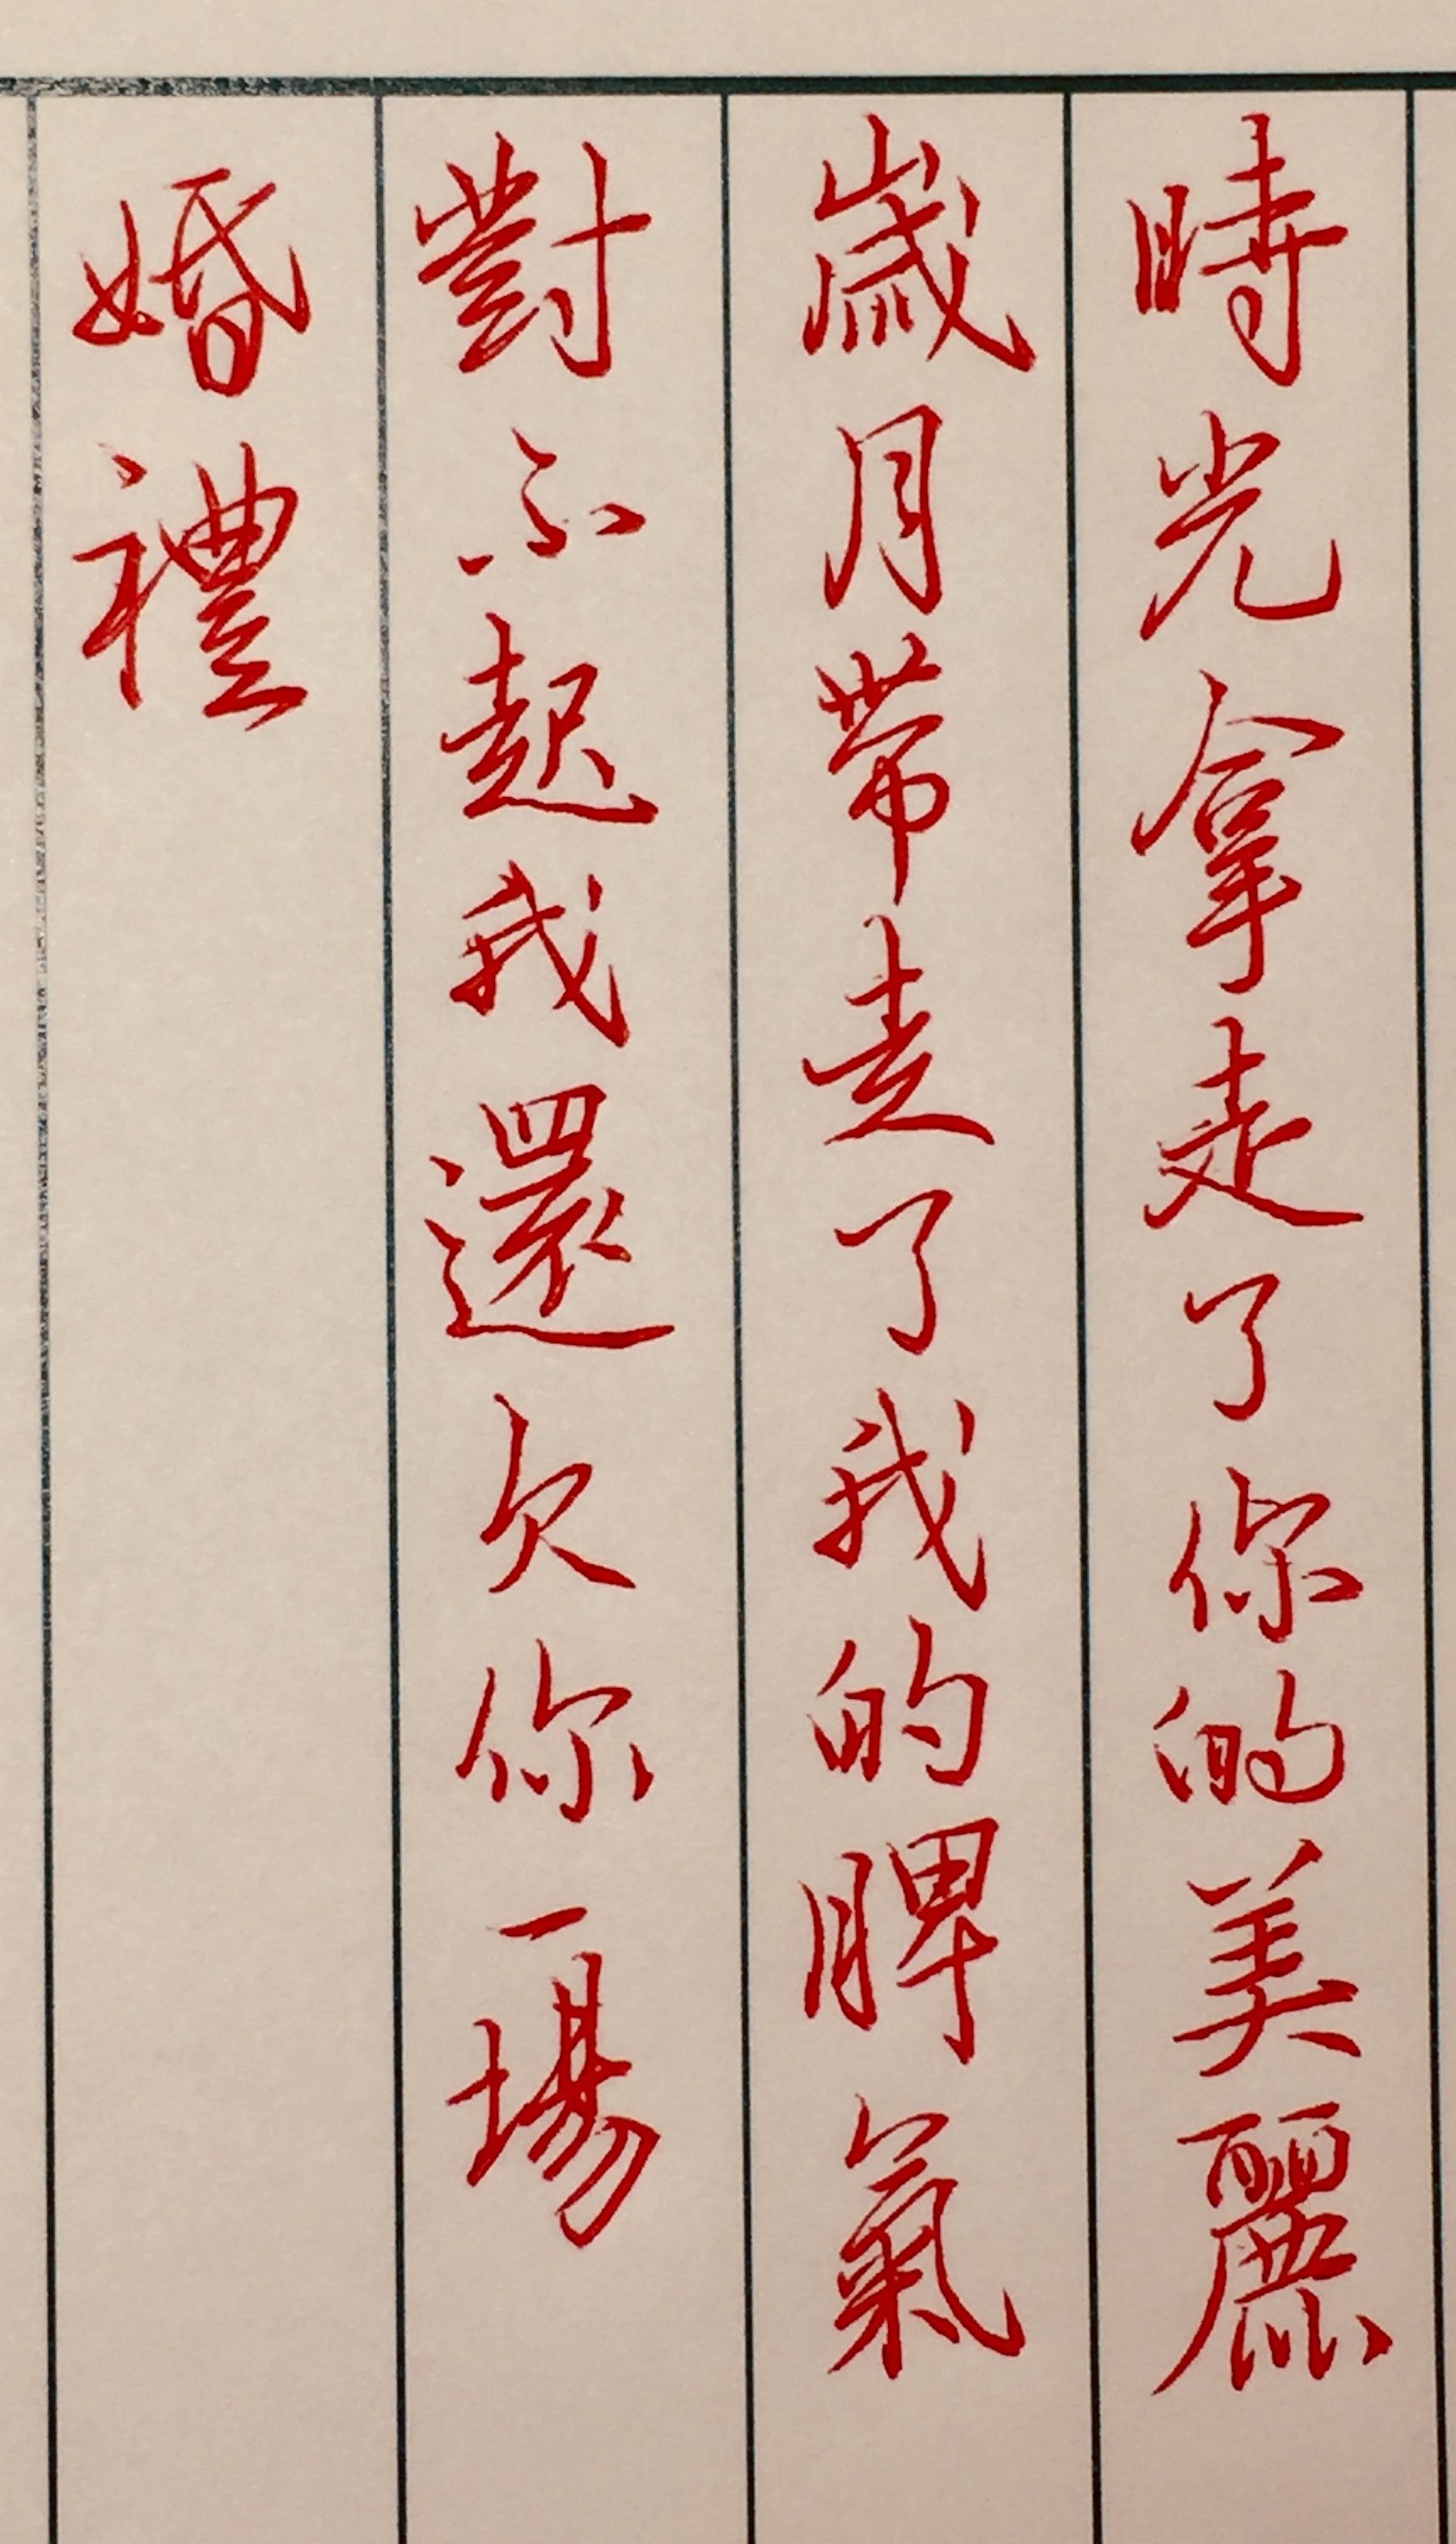 時光拿走了你的美麗
歲月帶走了我的脾氣
對不起我還欠你一場
婚禮